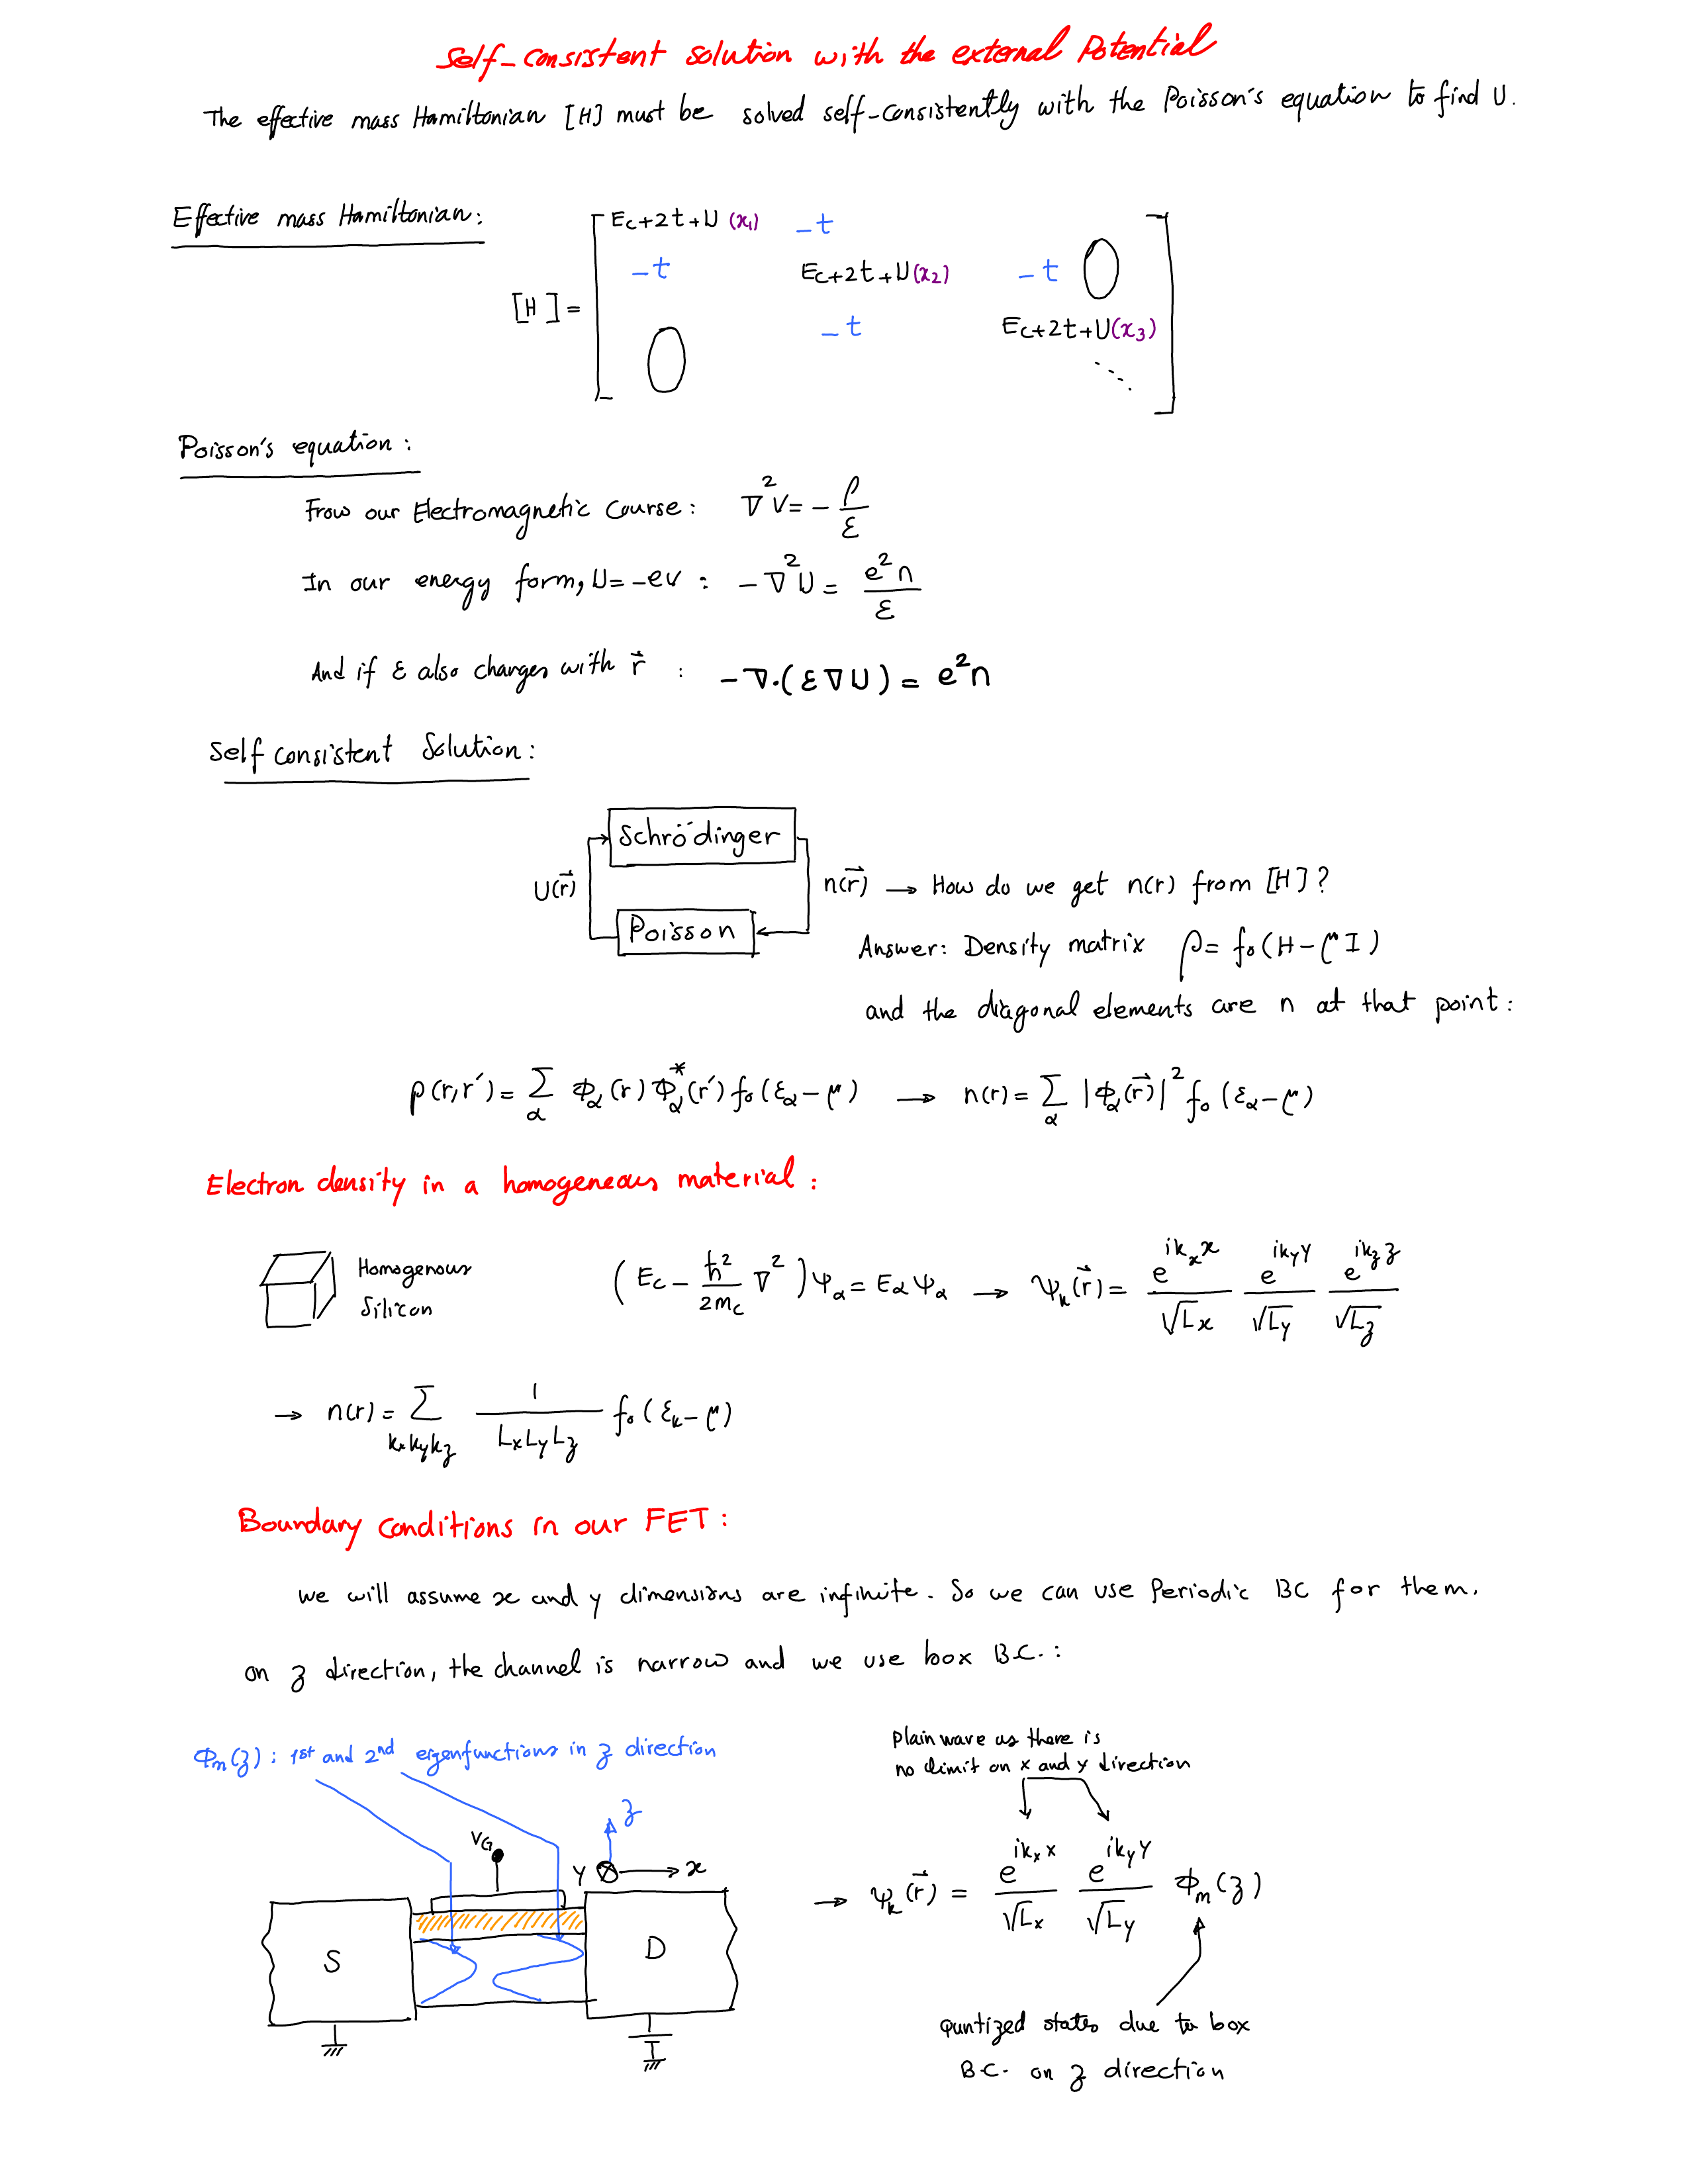 Self-consistent solution with the external Potential
The effective mass Hamiltonian [H] must be solved self-consistently with the Poisson's equation to find U.
Effective mass Hamiltonian:
[H] =
Ec+2t+U(x₁) -t
-t Ec+2t+U(x₂) -t 0
0 -t Ec+2t+U(x₃)
⋱
Poisson's equation:
From our Electromagnetic Course: ∇²V = - ρ/ε
In our energy form, U=-eV : -∇²U = e²n/ε
And if ε also changes with r⃗ : -∇·(ε∇U) = e²n
Self consistent Solution:
Schrödinger
U(r⃗) n(r⃗) → How do we get n(r) from [H]?
Poisson
Answer: Density matrix ρ = f₀(H-μI)
and the diagonal elements are n at that point:
ρ(r,r′) = Σ_α Φ_α(r) Φ_α*(r′) f₀(ε_α-μ) → n(r) = Σ_α |Φ_α(r⃗)|² f₀(ε_α-μ)
Electron density in a homogeneous material:
Homogenous
Silicon
(Ec - ħ²/2m_c ∇²)ψ_α = E_α ψ_α → ψ_k(r⃗) = e^{ik_x x}/√Lx e^{ik_y y}/√Ly e^{ik_z z}/√Lz
→ n(r) = Σ_{kx ky kz} 1/(Lx Ly Lz) f₀(ε_k-μ)
Boundary conditions in our FET:
we will assume x and y dimensions are infinite. So we can use Periodic BC for them.
on z direction, the channel is narrow and we use box B.C.:
Φm(z): 1st and 2nd eigenfunctions in z direction
plain wave as there is
no limit on x and y direction
z
VG
Y x
→ ψ_k(r⃗) = e^{ik_x x}/√Lx e^{ik_y y}/√Ly Φm(z)
S D
quntized states due to box
B.C. on z direction